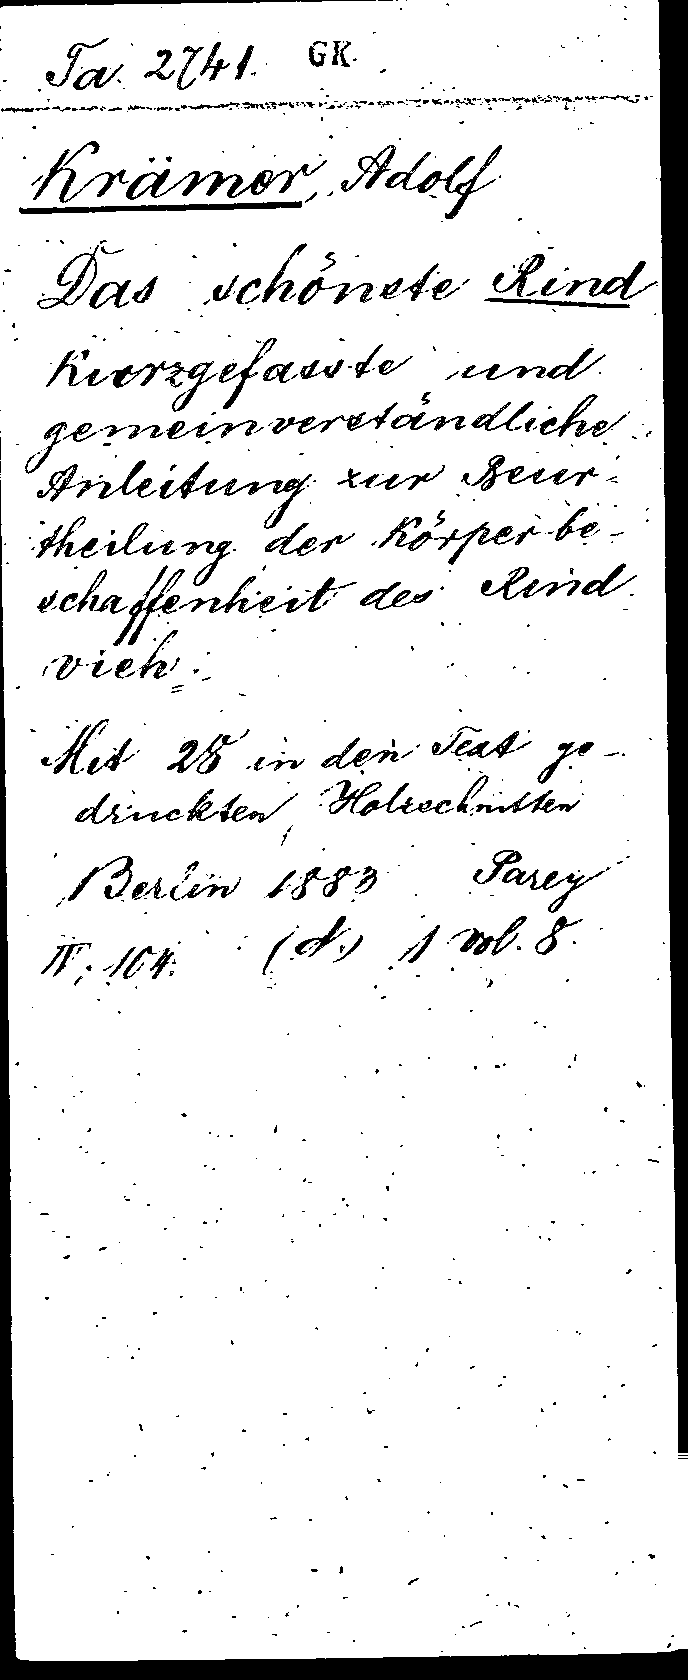 Ta 2741. GK.
Krämer, Adolf
Das schönste Rind
Kurzgefasste und
gemeinverständliche
Anleitung zur Beur-
theilung der Körperbe-
schaffenheit des Rind
vieh.
Mit 28 in den Text ge-
druckten Holzschnitten
Berlin 1883 Parey
IV; 104. 1 vol. 8.